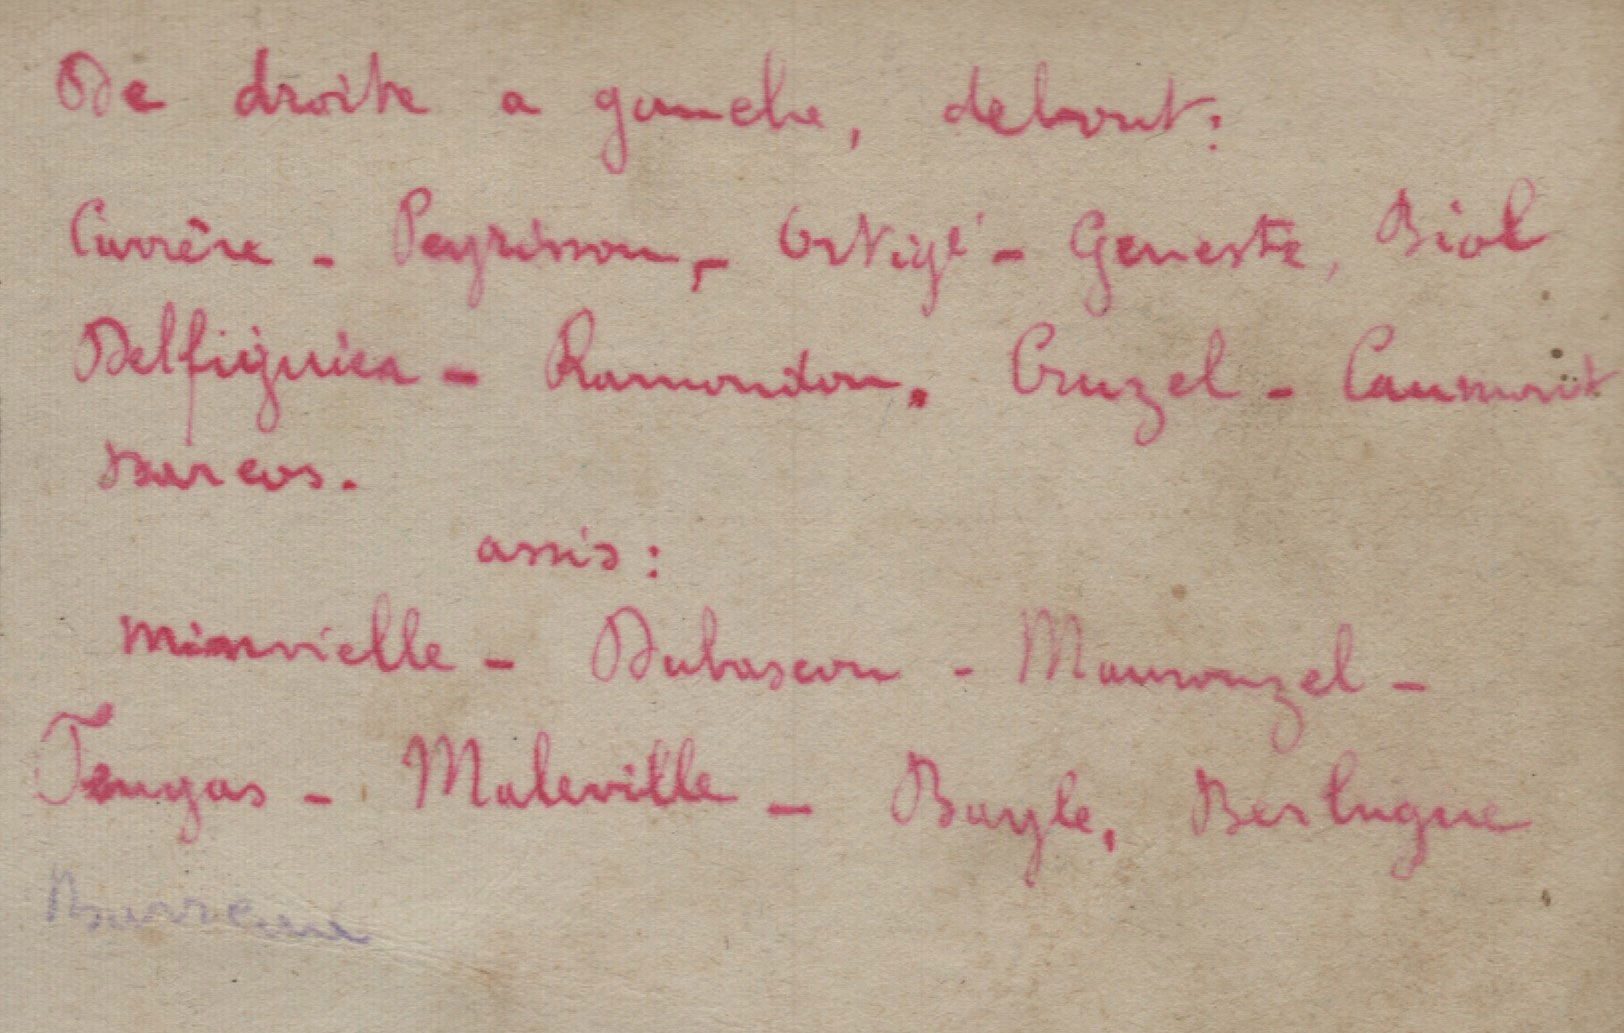 De droite a gauche, debout:
Carrère - Peyrisson, - Ortigé - Geneste, Biol
Delfiguier - Ramondou. Cruzel - Caumont
Marcos.
assis:
Minvielle - Dubascou - Maurouzel -
Faugas - Maleville - Bayle, Berlugue
Barreau